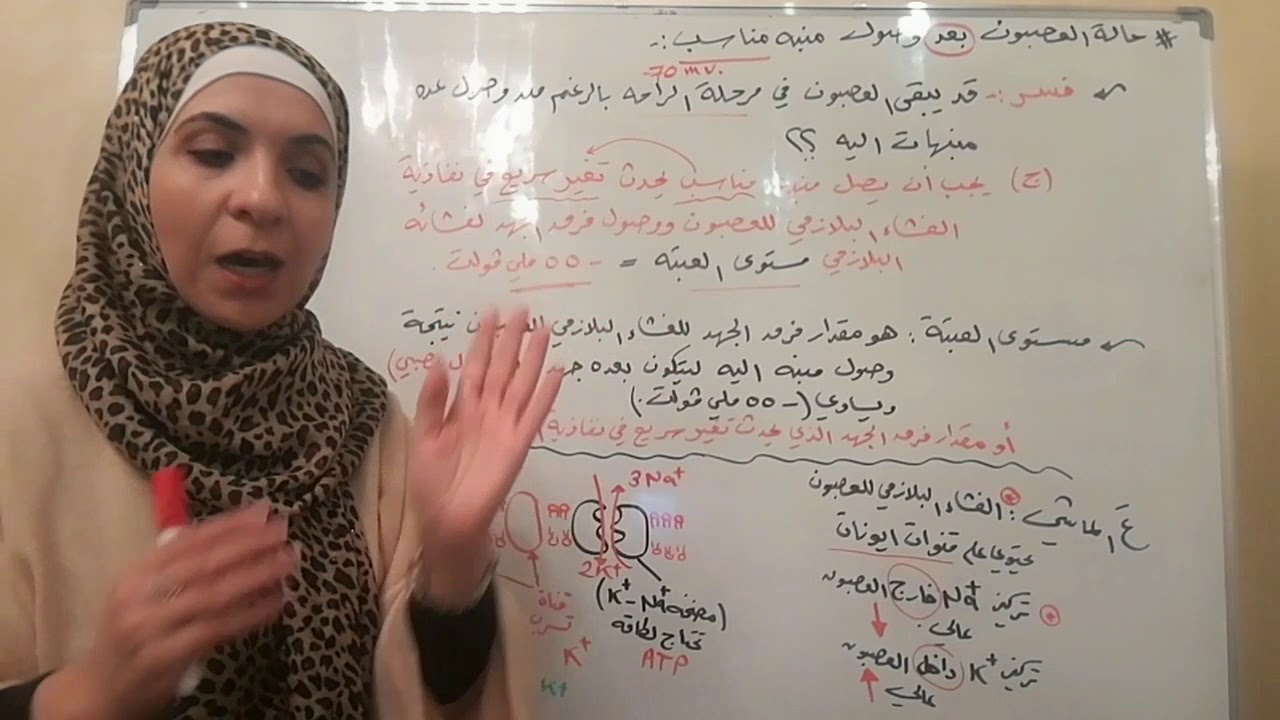 # حالة العصبون بعد وصول منبه مناسب :-
-70 mv.
فسر :- قد يبقى العصبون في مرحلة الراحة بالرغم من وصول عدة
منبهات اليه ؟؟
(ج) يجب أن يصل منبه مناسب يحدث تغير سريع في نفاذية
الغشاء البلازمي للعصبون ووصول فرق الجهد لغشائه
البلازمي مستوى العتبة = - 55 ملي ڤولت .
مستوى العتبة : هو مقدار فرق الجهد للغشاء البلازمي نتيجة
وصول منبه اليه ليتكون بعده جهد
ويساوي (- 55 ملي ڤولت .)
أو مقدار فرق الجهد الذي يحدث تغير سريع في نفاذية
ع الماشي : الغشاء البلازمي للعصبون
يحتوي على قنوات ايونات
* تركيز Na+ خارج العصبون
عالي .
تركيز K+ داخل العصبون
عالي
3Na+
2K+
(مضخة Na+ - K+)
تحتاج لطاقة
ATP
قناة
تسرب
K+
K+